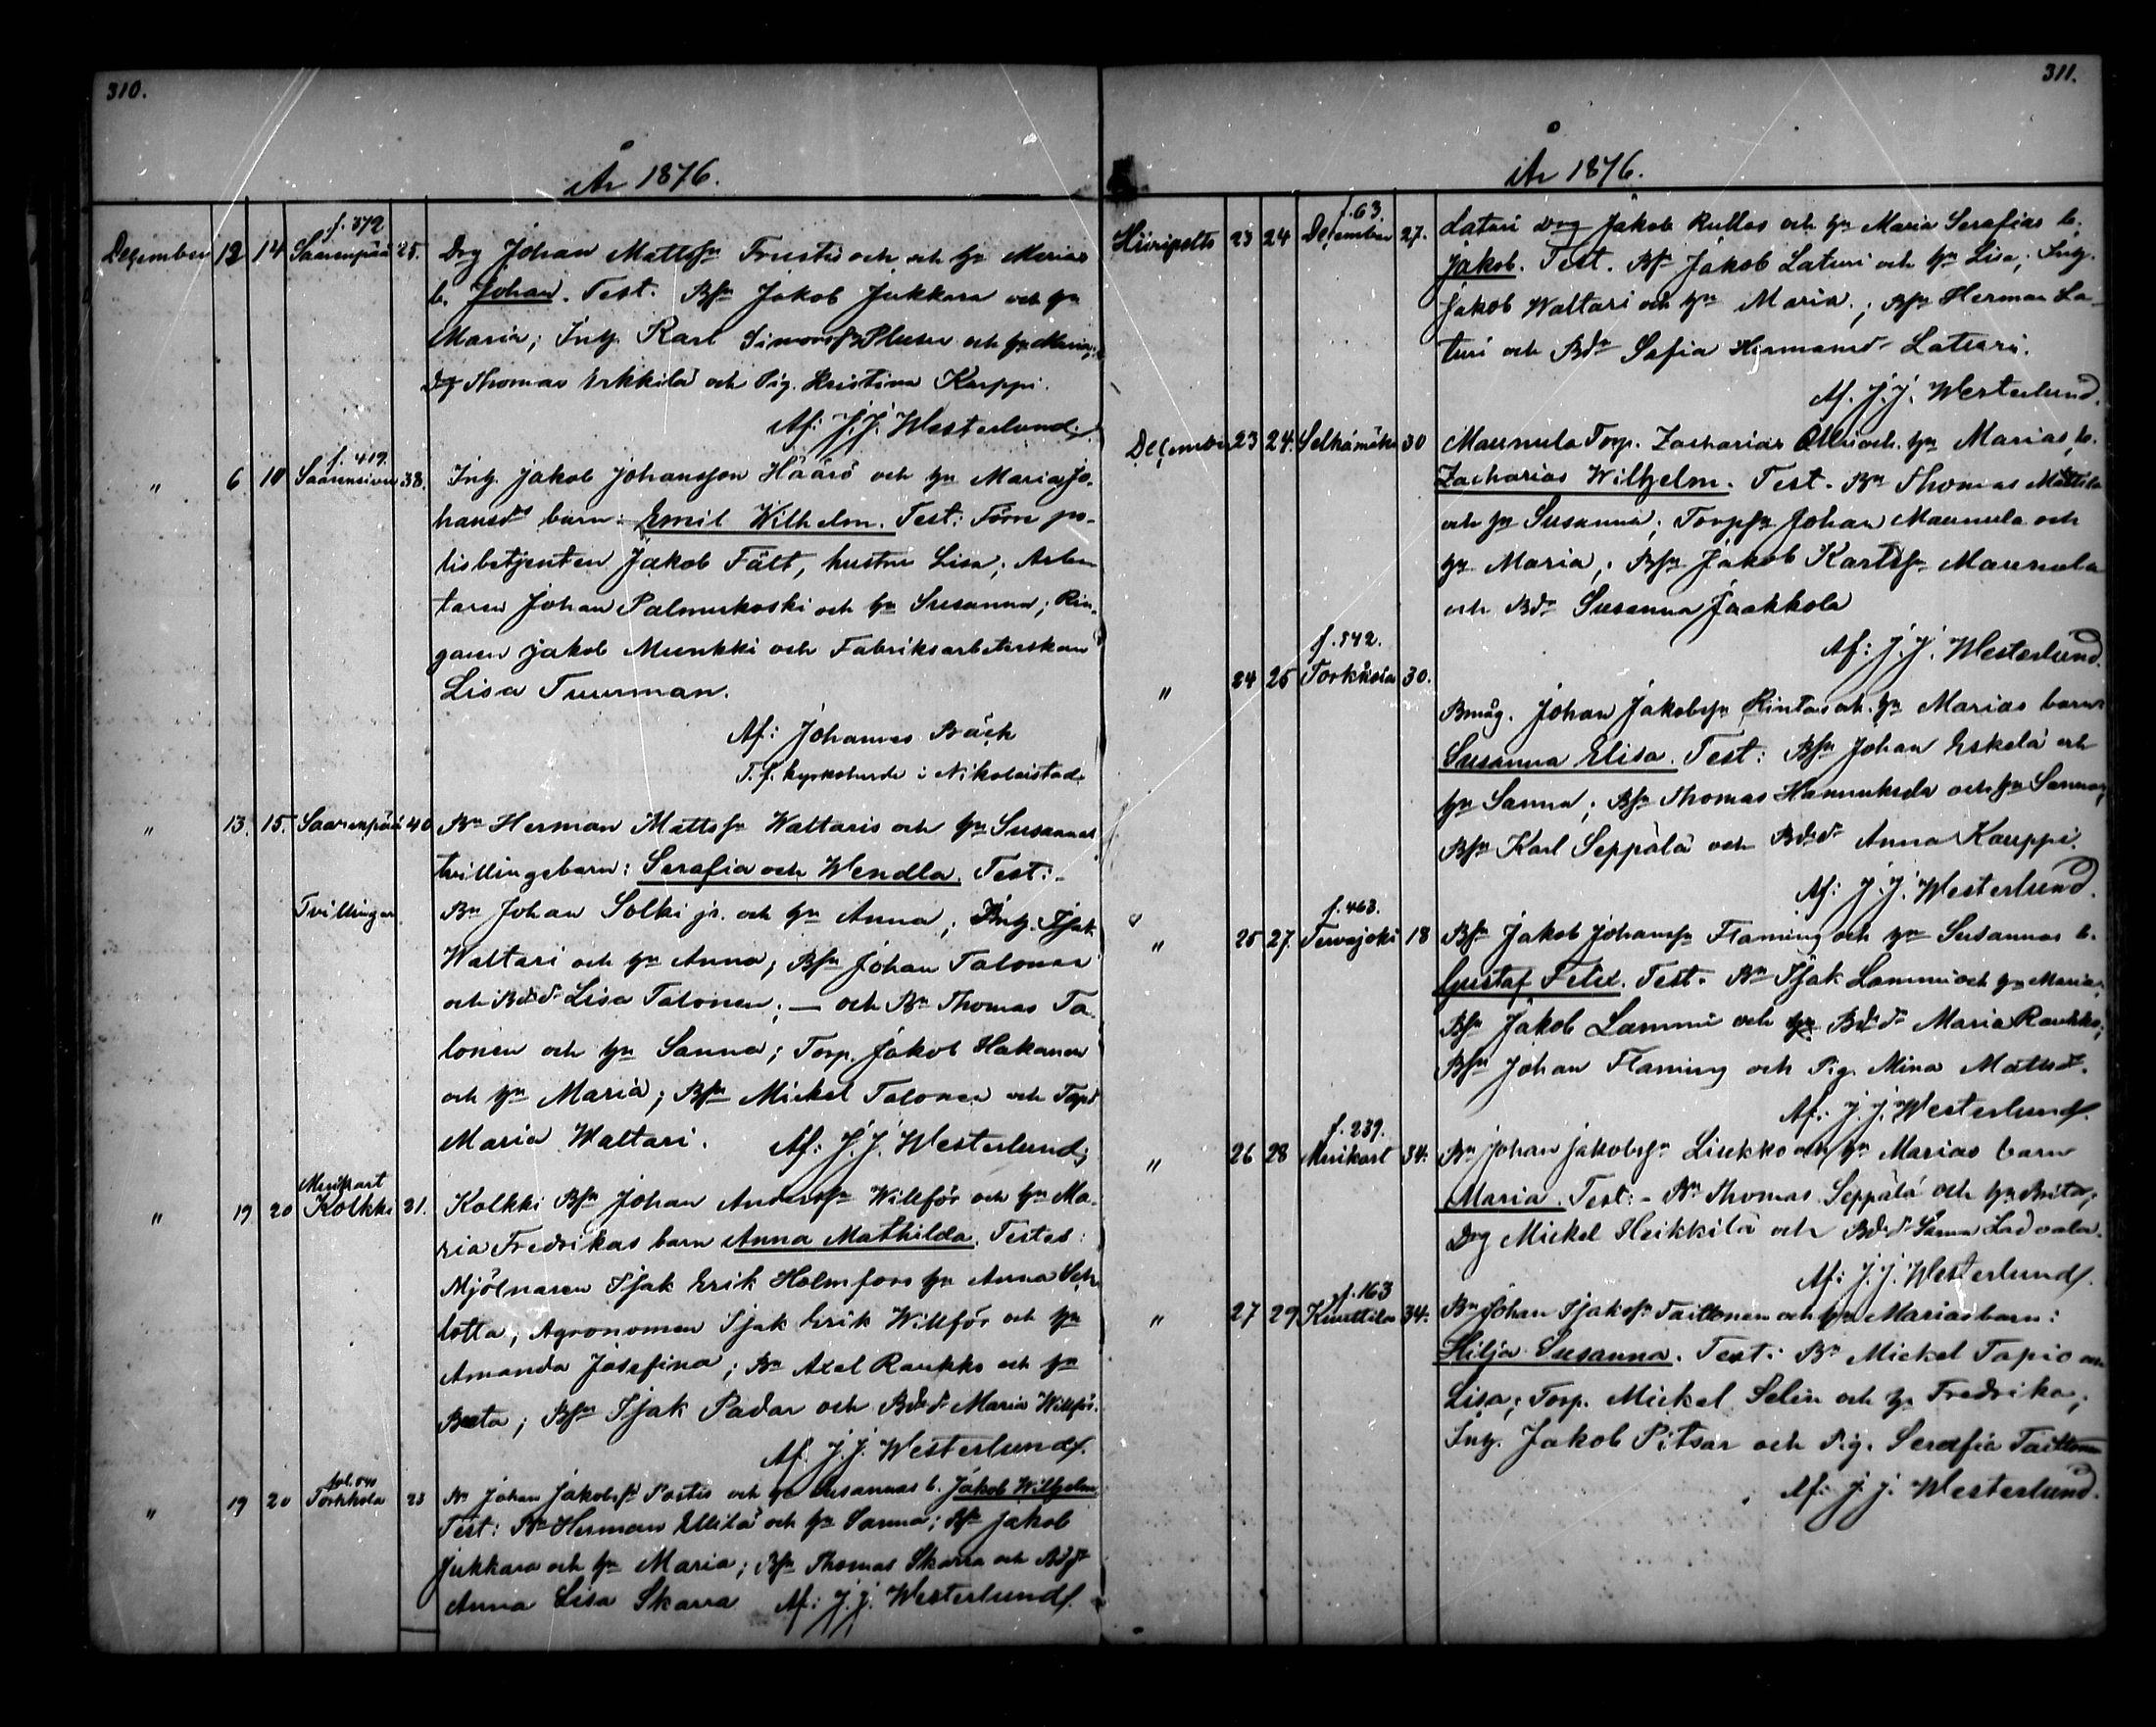 310.
År 1876.
f. 372
December 12 14 Saarenpää 25. Drg Johan Mattss Frustis och och hu Marias
b. Johan. Test. Bsn Jakob Jukkara och hu
Maria; Inh. Karl Simonss och hu Maria;
Dg Thomas Erkkilä och Pig. Kristina Karppi.
Af: J.J. Westerlund.
f. 419.
" 6 10 38. Inh. Jakob Johansson Häärö och hu Maria Jo-
hansds barn: Emil Wilhelm. Test: Förre po-
lisbetjenten Jakob Fält, hustru Lisa; Arbe
taren Johan Palmukoski och hu Susanna; Rin-
garen Jakob Munkki och Fabriksarbeterskan
Lisa Tuurman.
Af: Johannes Bäck
T. f. kyrkoherde i Nikolaistad.
" 13. 15. Saarenpää 40 Bn Herman Mattss Waltaris och hu Susannas
tvillingebarn: Serafia och Wendla. Test:-
Tvillingar. Bn Johan Solki jr. och hu Anna; Inh. Isak
Waltari och hu Anna; Bsn Johan Talonen
och Bdr Lisa Talonen; — och Bn Thomas Ta
lonen och hu Sanna; Torp. Jakob Hakanen
och hu Maria; Bsn Mickel Talonen och
Maria Waltari. Af: J.J. Westerlund;
Merikart
" 19. 20 Kolkki 21. Kolkki Bsn Johan Anderss Willför och hu Ma-
ria Fredrikas barn Anna Mathilda. Testes:
Mjölnaren Isak Erik Holmfors hu Anna
lotta; Agronomen Isak Erik Willför och hu
Amanda Josefina; Bn Axel Raukko och hu
Beata; Bsn Isak Padar och Bdr Maria Willför.
Af. J.J. Westerlund.
fol. 540
" 19 20 Torkkola 23 Bn Johan Jakobss Postis och hu Susannas b. Jakob Wilhelm
Test: Bn Herman Ellilä och hu Sanna; Bsn Jakob
Jukkara och hu Maria; Bsn Thomas Skarra och Bdr
Anna Lisa Skarra Af: J.J. Westerlund.
311.
År 1876.
f. 63.
Hiiripelto 23 24 December 27. Laturi Drg Jakob Rullas och hu Maria Serafias b.
Jakob. Test. Bsn Jakob Laturi och hu Lisa; Inh.
Jakob Waltari och hu Maria; Bsn Herman La-
turi och Bdr Sofia Hermansd Laturi.
Af. J.J. Westerlund.
December 23 24. Selkämäki 30 Maunula Torp. Zacharias och hu Marias b.
Zacharias Wilhelm. Test. Bn Thomas Mattila
och hu Susanna; Torpsn Johan Maunula och
hu Maria; Bsn Jakob Karlss Maunula
och Bdr Susanna Jaakkola
Af: J.J. Westerlund.
f. 542.
" 24 25 Torkkola 30.
Bmåg. Johan Jakobss Rintas och hu Marias barn
Susanna Elisa. Test: Bsn Johan Eskelä och
hu Sanna; Bsn Thomas Hannuksela och hu Sanna;
Bsn Karl Seppälä och Bdr Anna Kauppi.
Af: J.J. Westerlund.
f. 463.
" 25 27. Tervajoki 18 Bsn Jakob Johanss Flaming och hu Susannas b.
Gustaf Felix. Test. Bn Isak Lammi och hu Maria,
Bsn Jakob Lammi och hu Bdr Maria Raukko;
Bsn Johan Flaming och Pig. Mina Matsd.
Af: J.J. Westerlund.
f. 239.
" 26 28 Merikart 34. Bn Johan Jakobss Liukko och hu Marias barn
Maria. Test:- Bn Thomas Seppälä och hu Brita;
Drg Mickel Heikkilä och Bdr Sanna Ladvala.
Af: J.J. Westerlund.
f. 163
" 27 29 Kuuttila 34. Bn Johan Isakss Taittonen och hu Marias barn:
Hilja Susanna. Test: Bn Mickel Tapio och
Lisa; Torp. Mickel Selin och hu Fredrika;
Inh. Jakob Pitsar och Pig. Serafia Taittonen
Af: J.J. Westerlund.